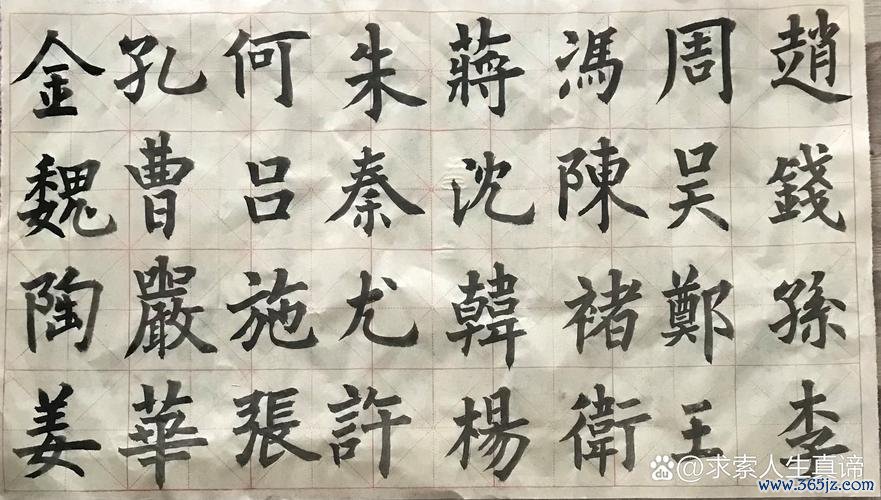 趙錢孫李
周吳鄭王
馮陳褚衛
蔣沈韓楊
朱秦尤許
何吕施張
孔曹嚴華
金魏陶姜
du @求索人生真谛
www.365jz.com